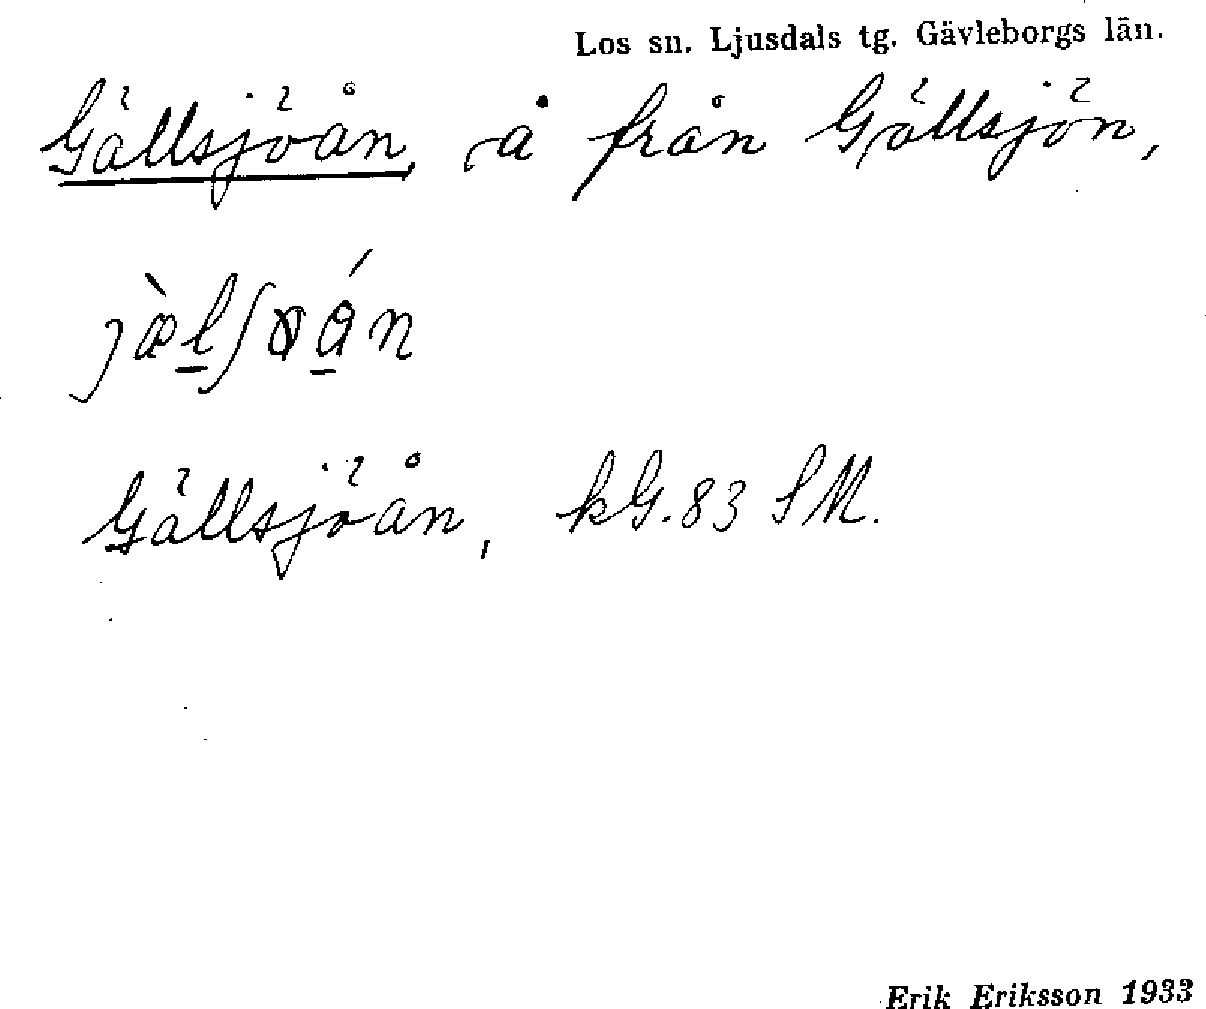 Los sn. Ljusdals tg. Gävleborgs län.
Gällsjöån, å från Gällsjön,
Gällsjöån, kG.83 SM.
Erik Eriksson 1933